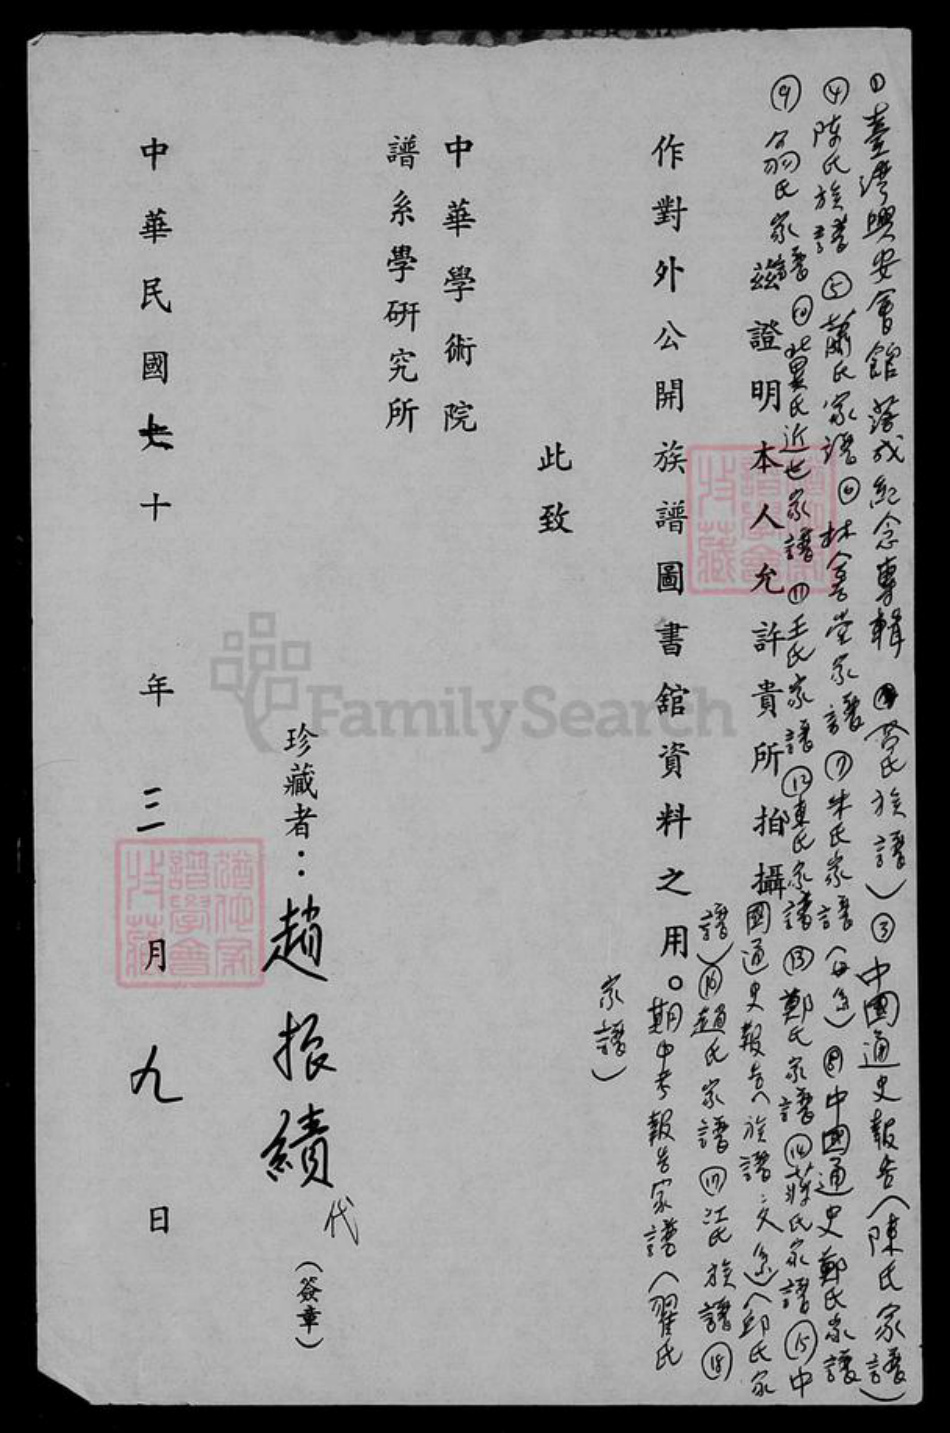 ①臺灣興安會館落成紀念專輯 ②黃氏族譜 ③中國通史報告(陳氏家譜)
④陳氏族譜 ⑤蕭氏家譜 ⑥林善堂家譜 ⑦朱氏家譜 ⑧中國通史鄭氏家譜
⑨翁氏家譜 ⑩ 氏近世家譜 ⑪王氏家譜 ⑫陳氏家譜 ⑬鄭氏家譜 ⑭蔣氏家譜 ⑮中
國通史報告(邱氏家
譜) ⑯趙氏家譜 ⑰江氏族譜 ⑱
期中考報告家譜(翟氏
家譜)
茲證明本人允許貴所拍攝
作對外公開族譜圖書館資料之用。
此致
中華學術院
譜系學研究所
珍藏者:趙振績代(簽章)
中華民國七十年三月九日
FamilySearch